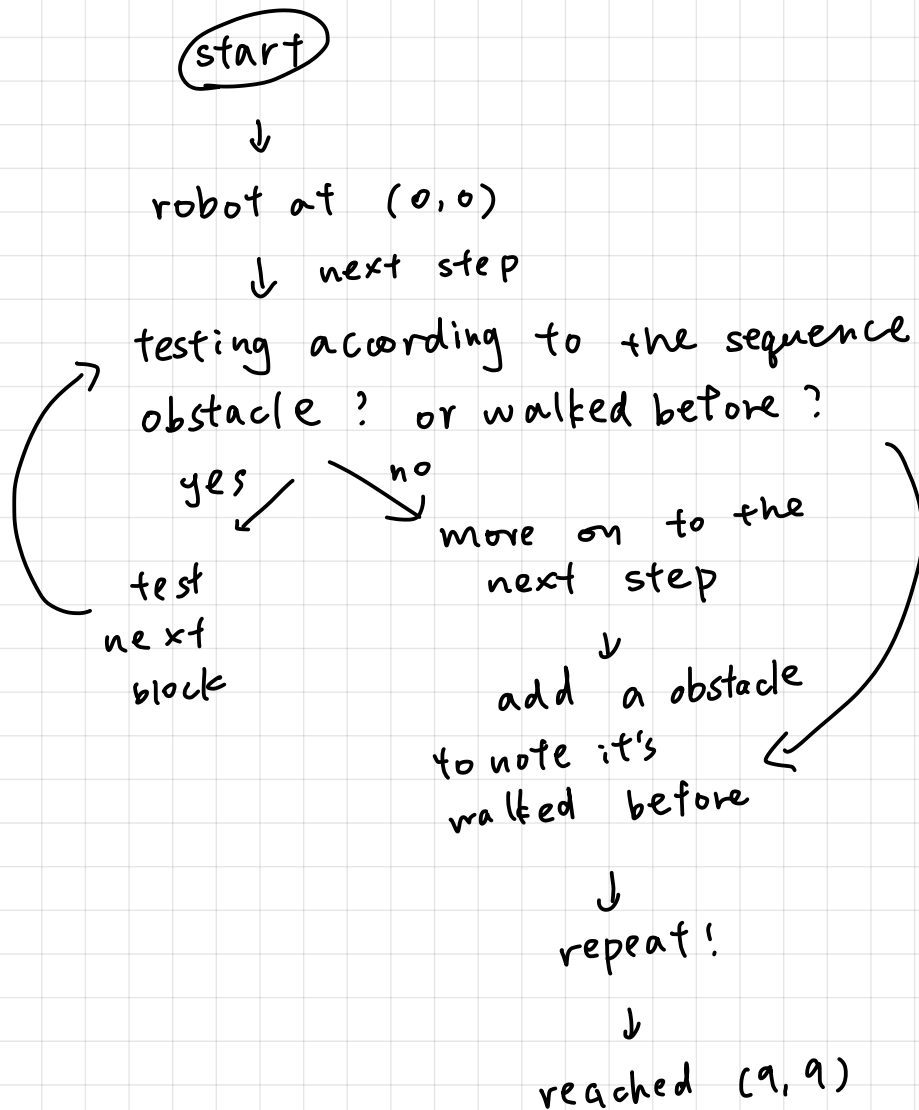 start
robot at (0,0)
next step
testing acoording to the sequence
obstacle ? or walked before ?
yes
no
test
next
block
more on to the
next step
add a obstacle
to note it's
walked before
repeat!
reached (9,9)